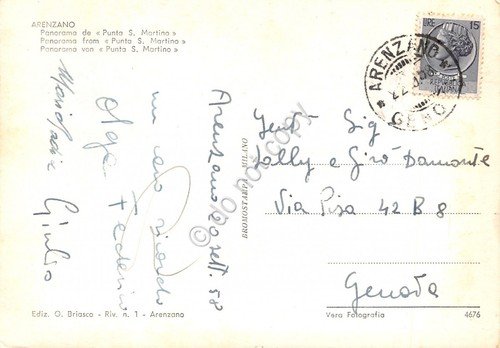 ARENZANO
Panorama da « Punta S. Martino »
Panorama from « Punta S. Martino »
Panorama von « Punta S. Martino »
LIRE 15
ARENZANO
GENO
Arenzano 20 sett. 58
un caro ricordo
Olga Federico
Giulio
BROMOSTAMPA - MILANO
Gent. Sig
Lolly e Girò Damonte
Via Pisa 42 B 8
Genova
Ediz. G. Briasco - Riv. n. 1 - Arenzano
Vera Fotografia
4676
do not copy